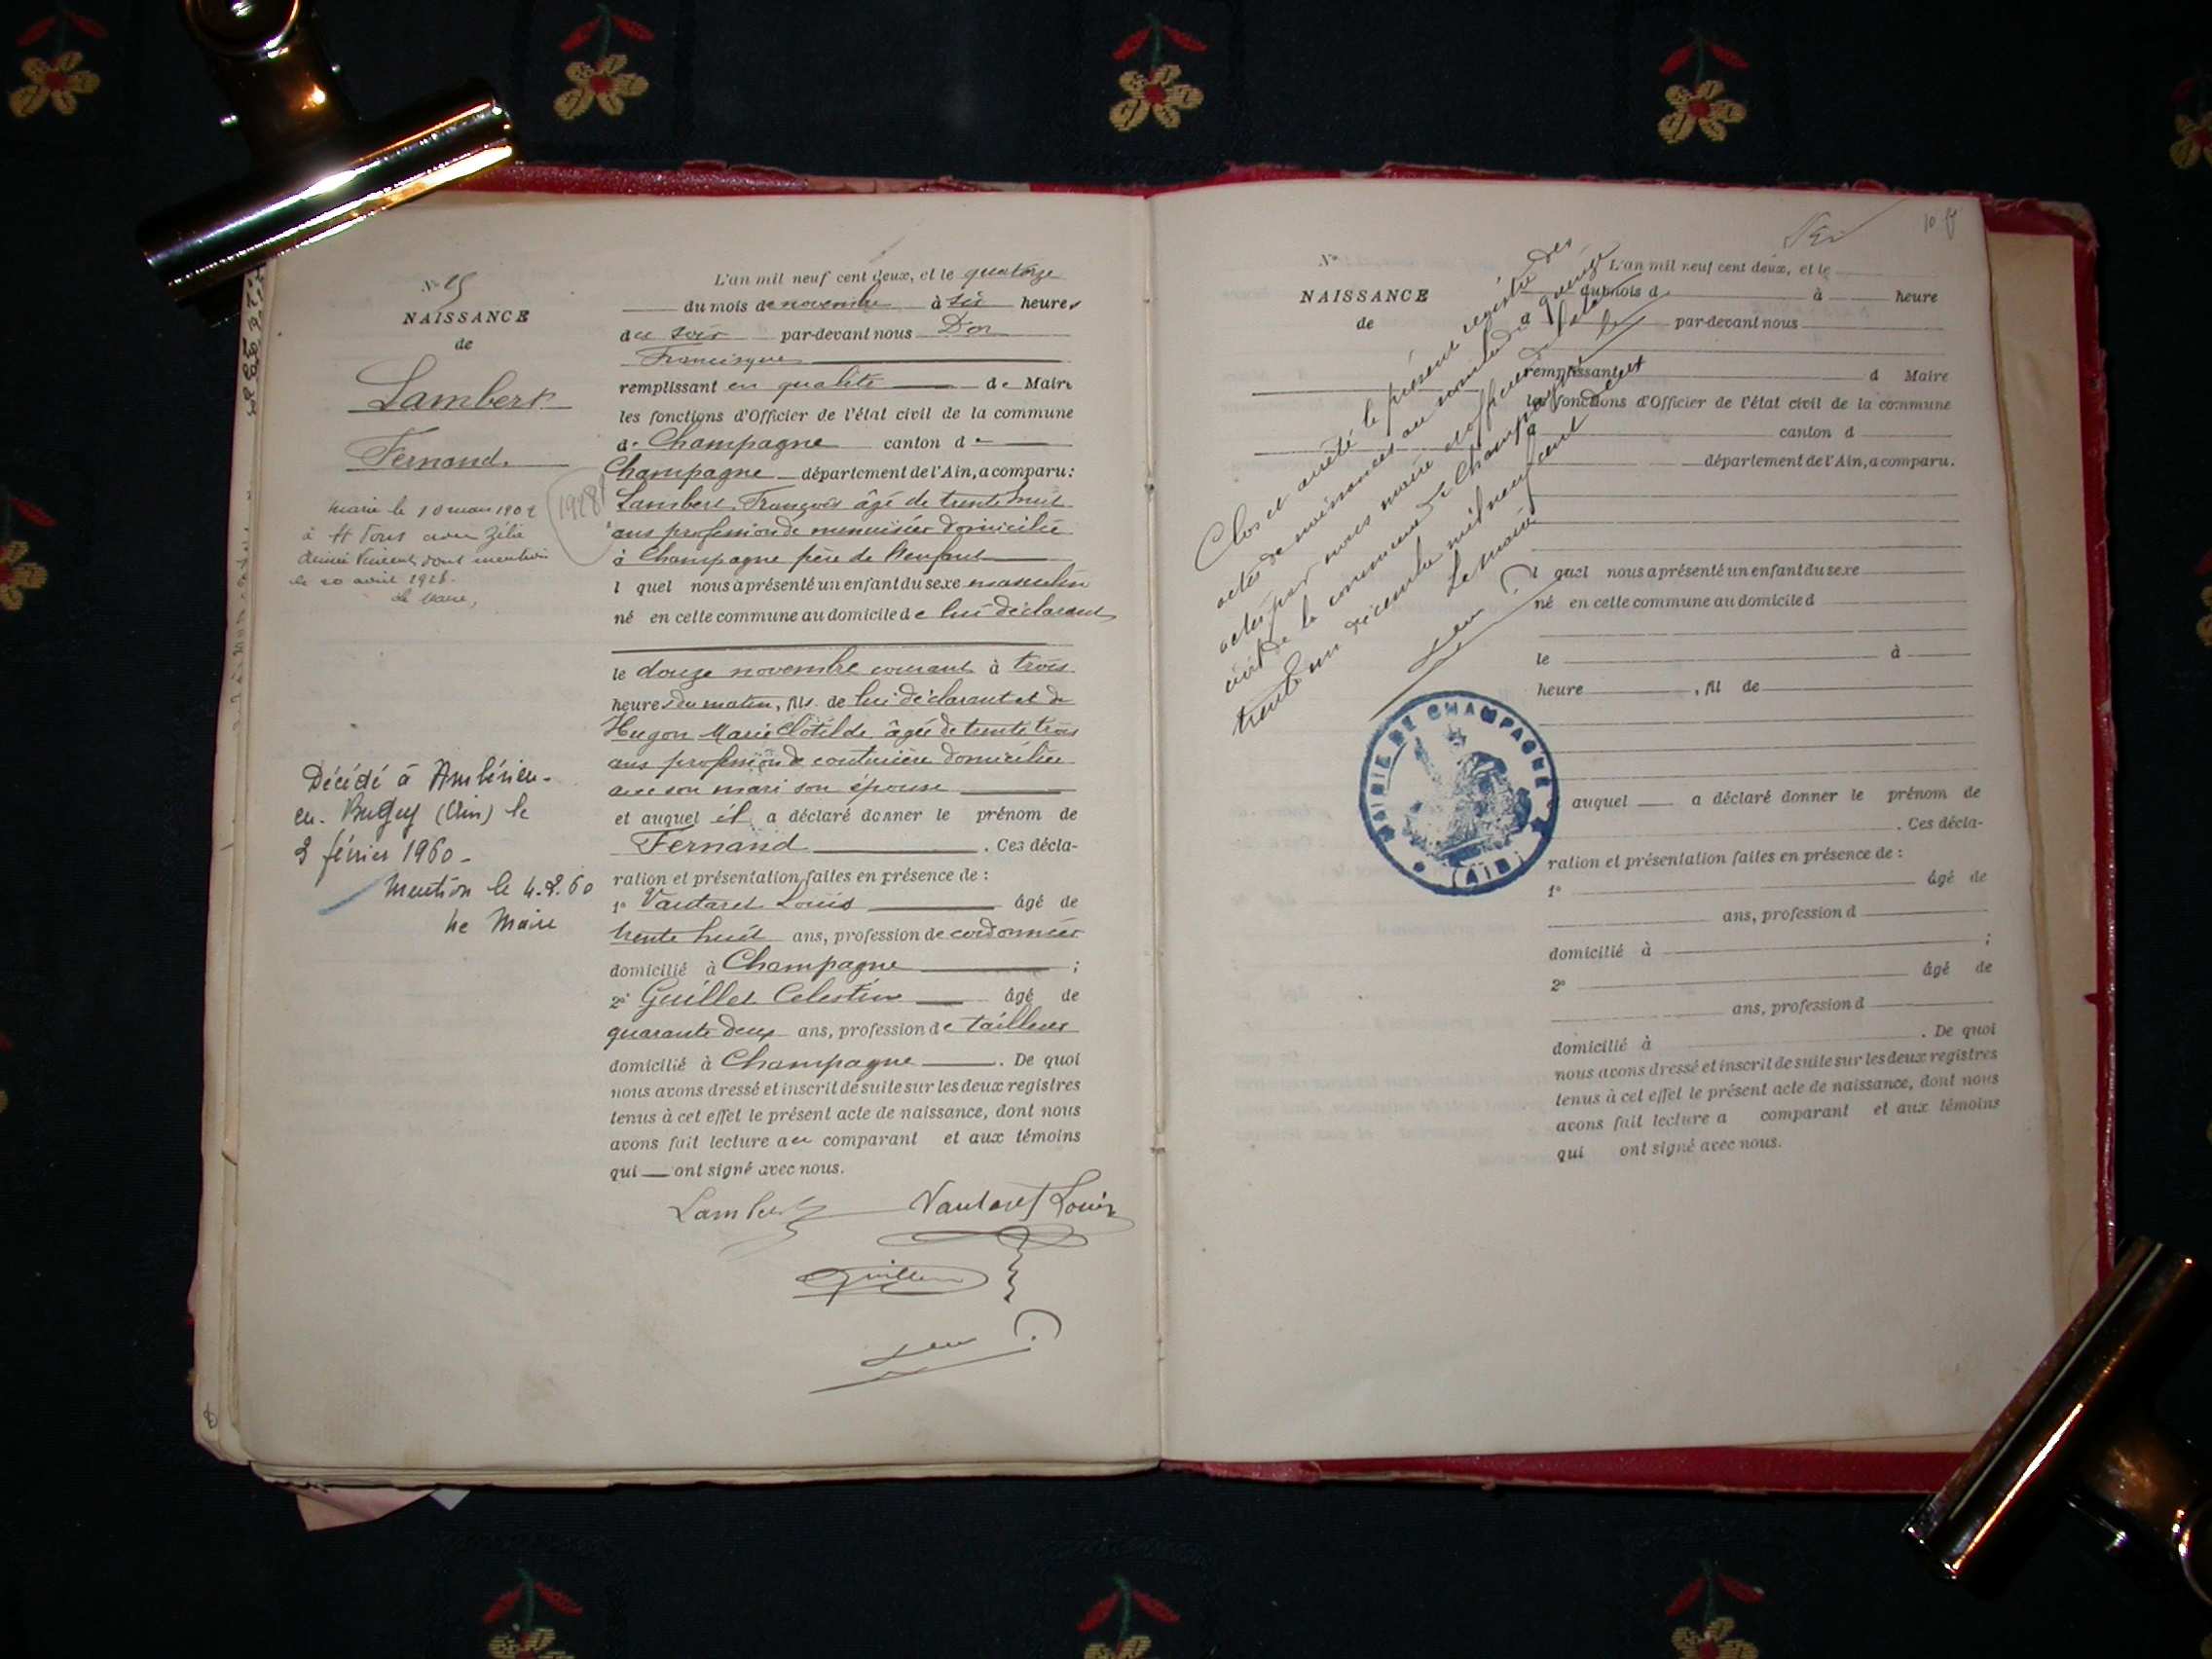 N° 15
NAISSANCE
de
Lambert
Fernand.
Marié le 10 mars 1902
à avec Zélie
Vincent, dont mention
le 20 avril 1928.
Le Maire,
1928
Décédé à Ambérieu-
en-Bugey (Ain) le
3 février 1960-
Mention le 4.2.60
Le Maire
L'an mil neuf cent deux, et le quatorze
du mois de novembre à six heures
du soir par-devant nous Don
Francisque
remplissant en qualité de Maire
les fonctions d'Officier de l'état civil de la commune
de Champagne canton de
Champagne département de l'Ain, a comparu:
Lambert François âgé de trente huit
ans profession de menuisier domicilié
à Champagne père de l'enfant
lequel nous a présenté un enfant du sexe masculin
né en cette commune au domicile de lui déclarant
le douze novembre courant à trois
heures du matin, fils de lui déclarant et de
Hugon Marie Clotilde âgée de trente trois
ans profession de couturière domiciliée
avec son mari son épouse
et auquel il a déclaré donner le prénom de
Fernand . Ces décla-
ration et présentation faites en présence de :
1° Vautaret Louis âgé de
trente huit ans, profession de cordonnier
domicilié à Champagne ;
2° Guillet Celestin âgé de
quarante deux ans, profession de tailleur
domicilié à Champagne . De quoi
nous avons dressé et inscrit de suite sur les deux registres
tenus à cet effet le présent acte de naissance, dont nous
avons fait lecture au comparant et aux témoins
qui ont signé avec nous.
Lambert Vautaret Louis
Guillet
10
N°
NAISSANCE
de
Clos et arrêté le présent registre des
actes de naissances au nombre de quinze
actes par nous maire et officier de l'état
civil de la commune de Champagne le
trente un décembre mil neuf cent deux
Le maire
MAIRIE DE CHAMPAGNE
(AIN)
L'an mil neuf cent deux, et le
du mois d à heure
par-devant nous
remplissant d Maire
les fonctions d'Officier de l'état civil de la commune
d canton d
département de l'Ain, a comparu.
l quel nous a présenté un enfant du sexe
né en cette commune au domicile d
le à
heure , fil de
auquel a déclaré donner le prénom de
. Ces décla-
ration et présentation faites en présence de :
1° âgé de
ans, profession d
domicilié à ;
2° âgé de
ans, profession d
domicilié à . De quoi
nous avons dressé et inscrit de suite sur les deux registres
tenus à cet effet le présent acte de naissance, dont nous
avons fait lecture a comparant et aux témoins
qui ont signé avec nous.